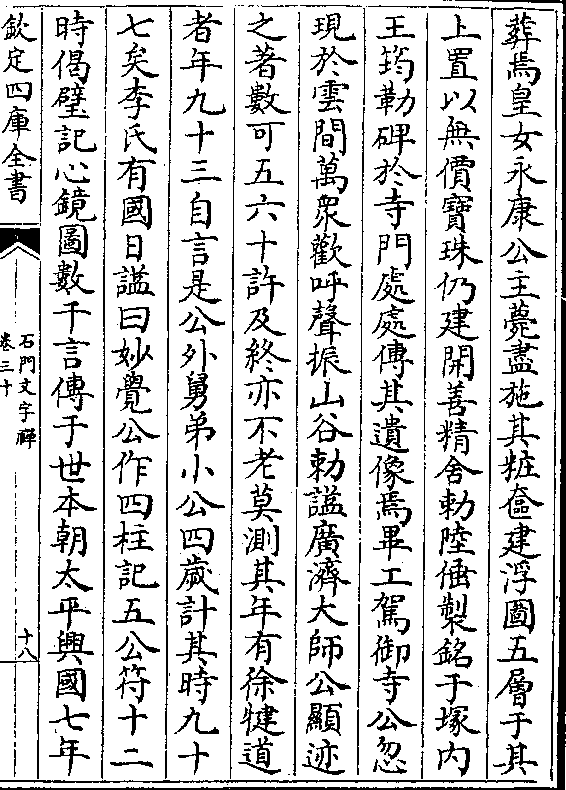 葬焉皇女永康公主薨盡施其粧奩建浮圖五層于其
上置以無價寶珠仍建開善精舍勅陸倕製銘于塚内
王筠勒碑於寺門處處傳其遺像焉畢工駕御寺公忽
現於雲間萬衆歡呼聲振山谷勅諡廣濟大師公顯迹
之著數可五六十許及終亦不老莫測其年有徐犍道
者年九十三自言是公外舅弟小公四歲計其時九十
七矣李氏有國日諡曰妙覺公作四柱記五公符十二
時偈壁記心鏡圖數千言傳于世本朝太平興國七年
欽定四庫全書
石門文字禪
卷三十
十八